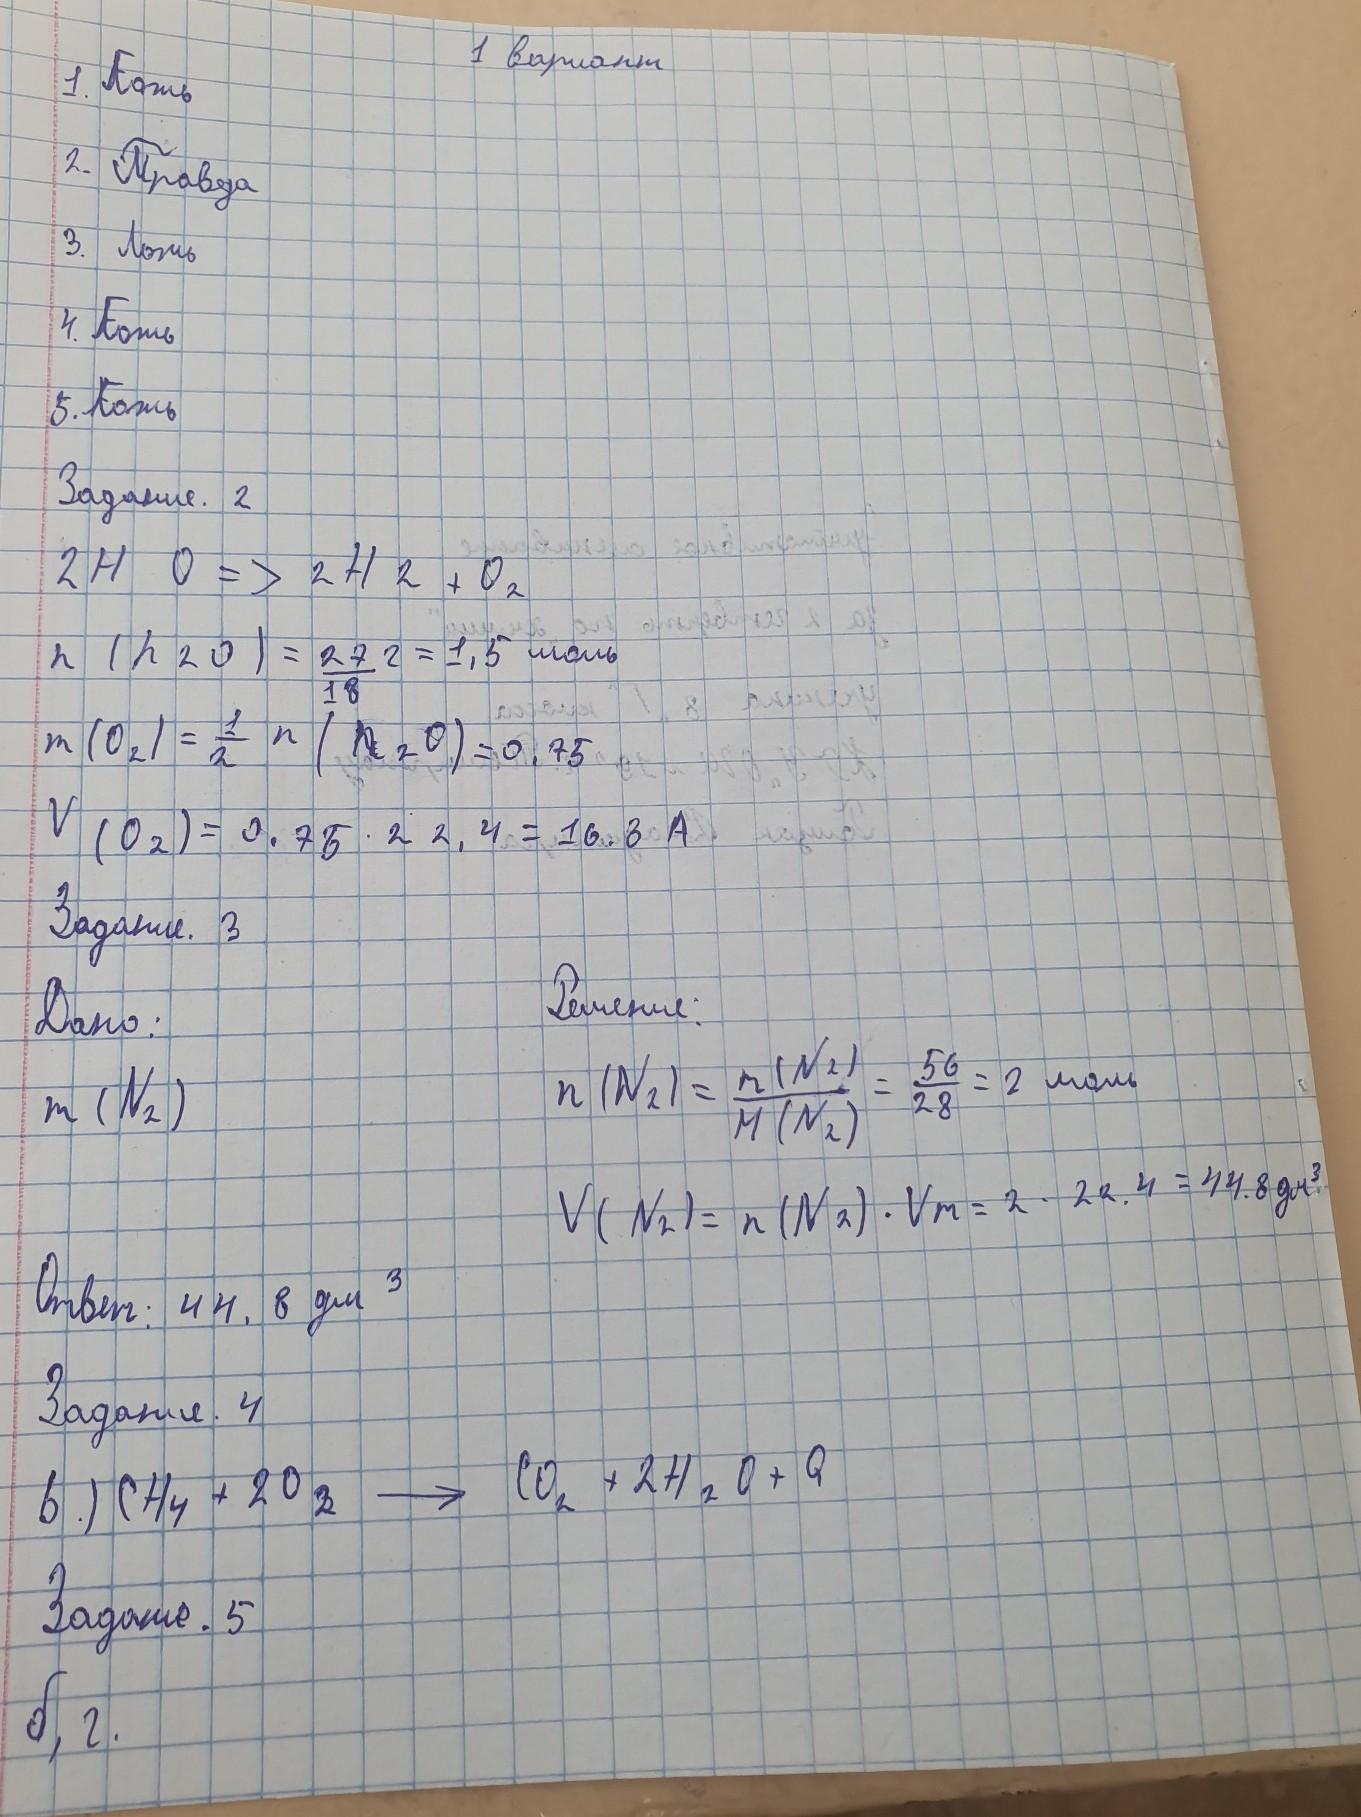 1 вариант
1. Ложь
2. Правда
3. Ложь
4. Ложь
5. Ложь
Задание. 2
2H O => 2H2 + O2
n (h20) = 27г/18 = 1,5 моль
m(O2) = 1/2 n (h2O) = 0.75
V (O2) = 0.75 · 22,4 = 16.8 л
Задание. 3
Дано:
m (N2)
Решение:
n (N2) = m(N2)/M(N2) = 56/28 = 2 моль
V(N2) = n(N2) · Vm = 2 · 22.4 = 44.8 дм³
Ответ: 44.8 дм³
Задание. 4
в.) CH4 + 2O2 → CO2 + 2H2O + Q
Задание. 5
б, г.